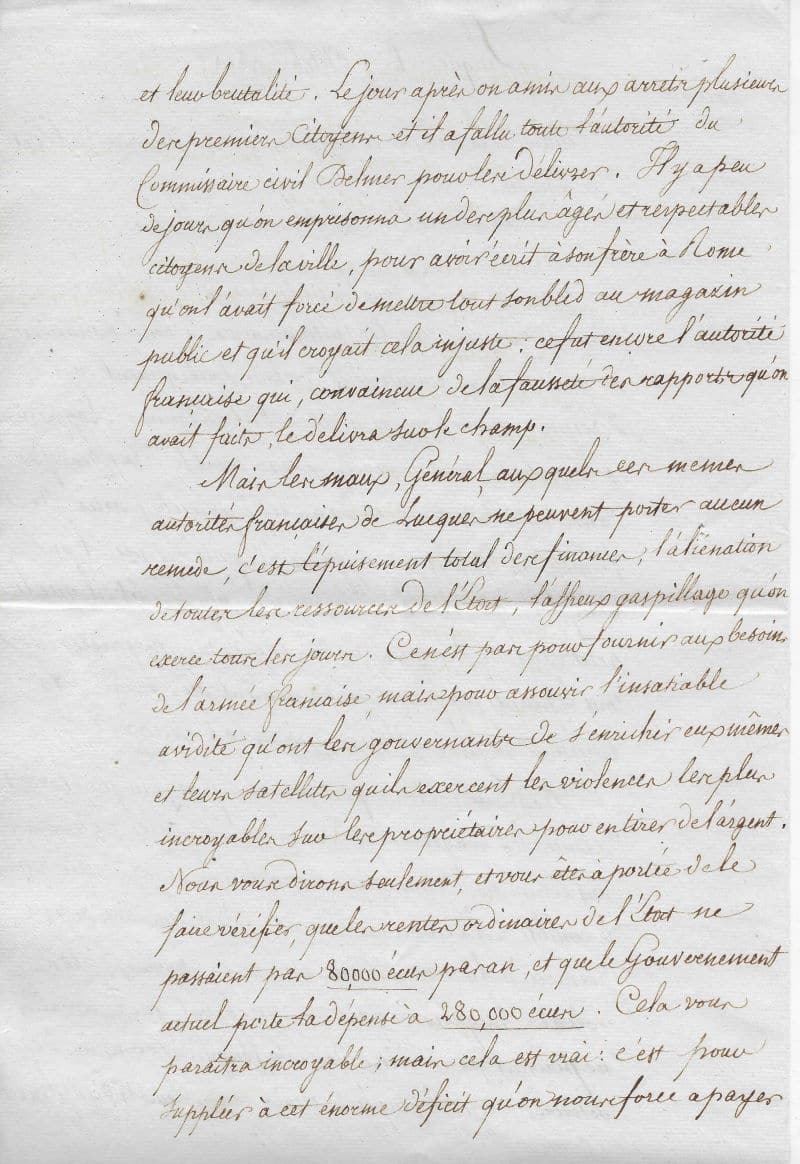 et leur brutalité. Le jour après on a mis aux arrets plusieurs
des premiers Citoyens et il a fallu toute l'autorité du
Commissaire civil Belmer pour les délivrer. Il y a peu
de jours qu'on emprisonna un des plus âgés et respectables
citoyens de la ville, pour avoir écrit à son frère à Rome
qu'on l'avait forcé de mettre tout son bled au magazin
public et qu'il croyait cela injuste : ce fut encore l'autorité
française qui, convaincue de la fausseté des rapports qu'on
avait faits, le délivra sur le champ.
Mais les maux, Général, aux quels ces memes
autorités françaises de Lucques ne peuvent porter aucun
remede, c'est l'épuisement total des finances, l'aliénation
de toutes les ressources de l'Etat, l'affreux gaspillage qu'on
exerce tous les jours. Ce n'est pas pour fournir aux besoins
de l'armée française, mais pour assouvir l'insatiable
avidité qu'ont les gouvernants de s'enrichir eux mêmes
et leurs satellites qu'ils exercent les violences les plus
incroyables sur les propriétaires pour en tirer de l'argent.
Nous vous dirons seulement, et vous êtes à portée de le
faire vérifier, que les rentes ordinaires de l'Etat ne
passaient pas 80,000 écus par an, et que le Gouvernement
actuel porte sa dépense à 280,000 écus. Cela vous
paraîtra incroyable ; mais cela est vrai : c'est pour
suppléer à cet énorme déficit qu'on nous force a payer